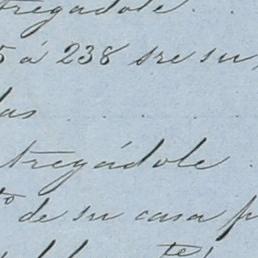 tregadole.
5 á 238 sre su
las
tregádole
to de su casa p